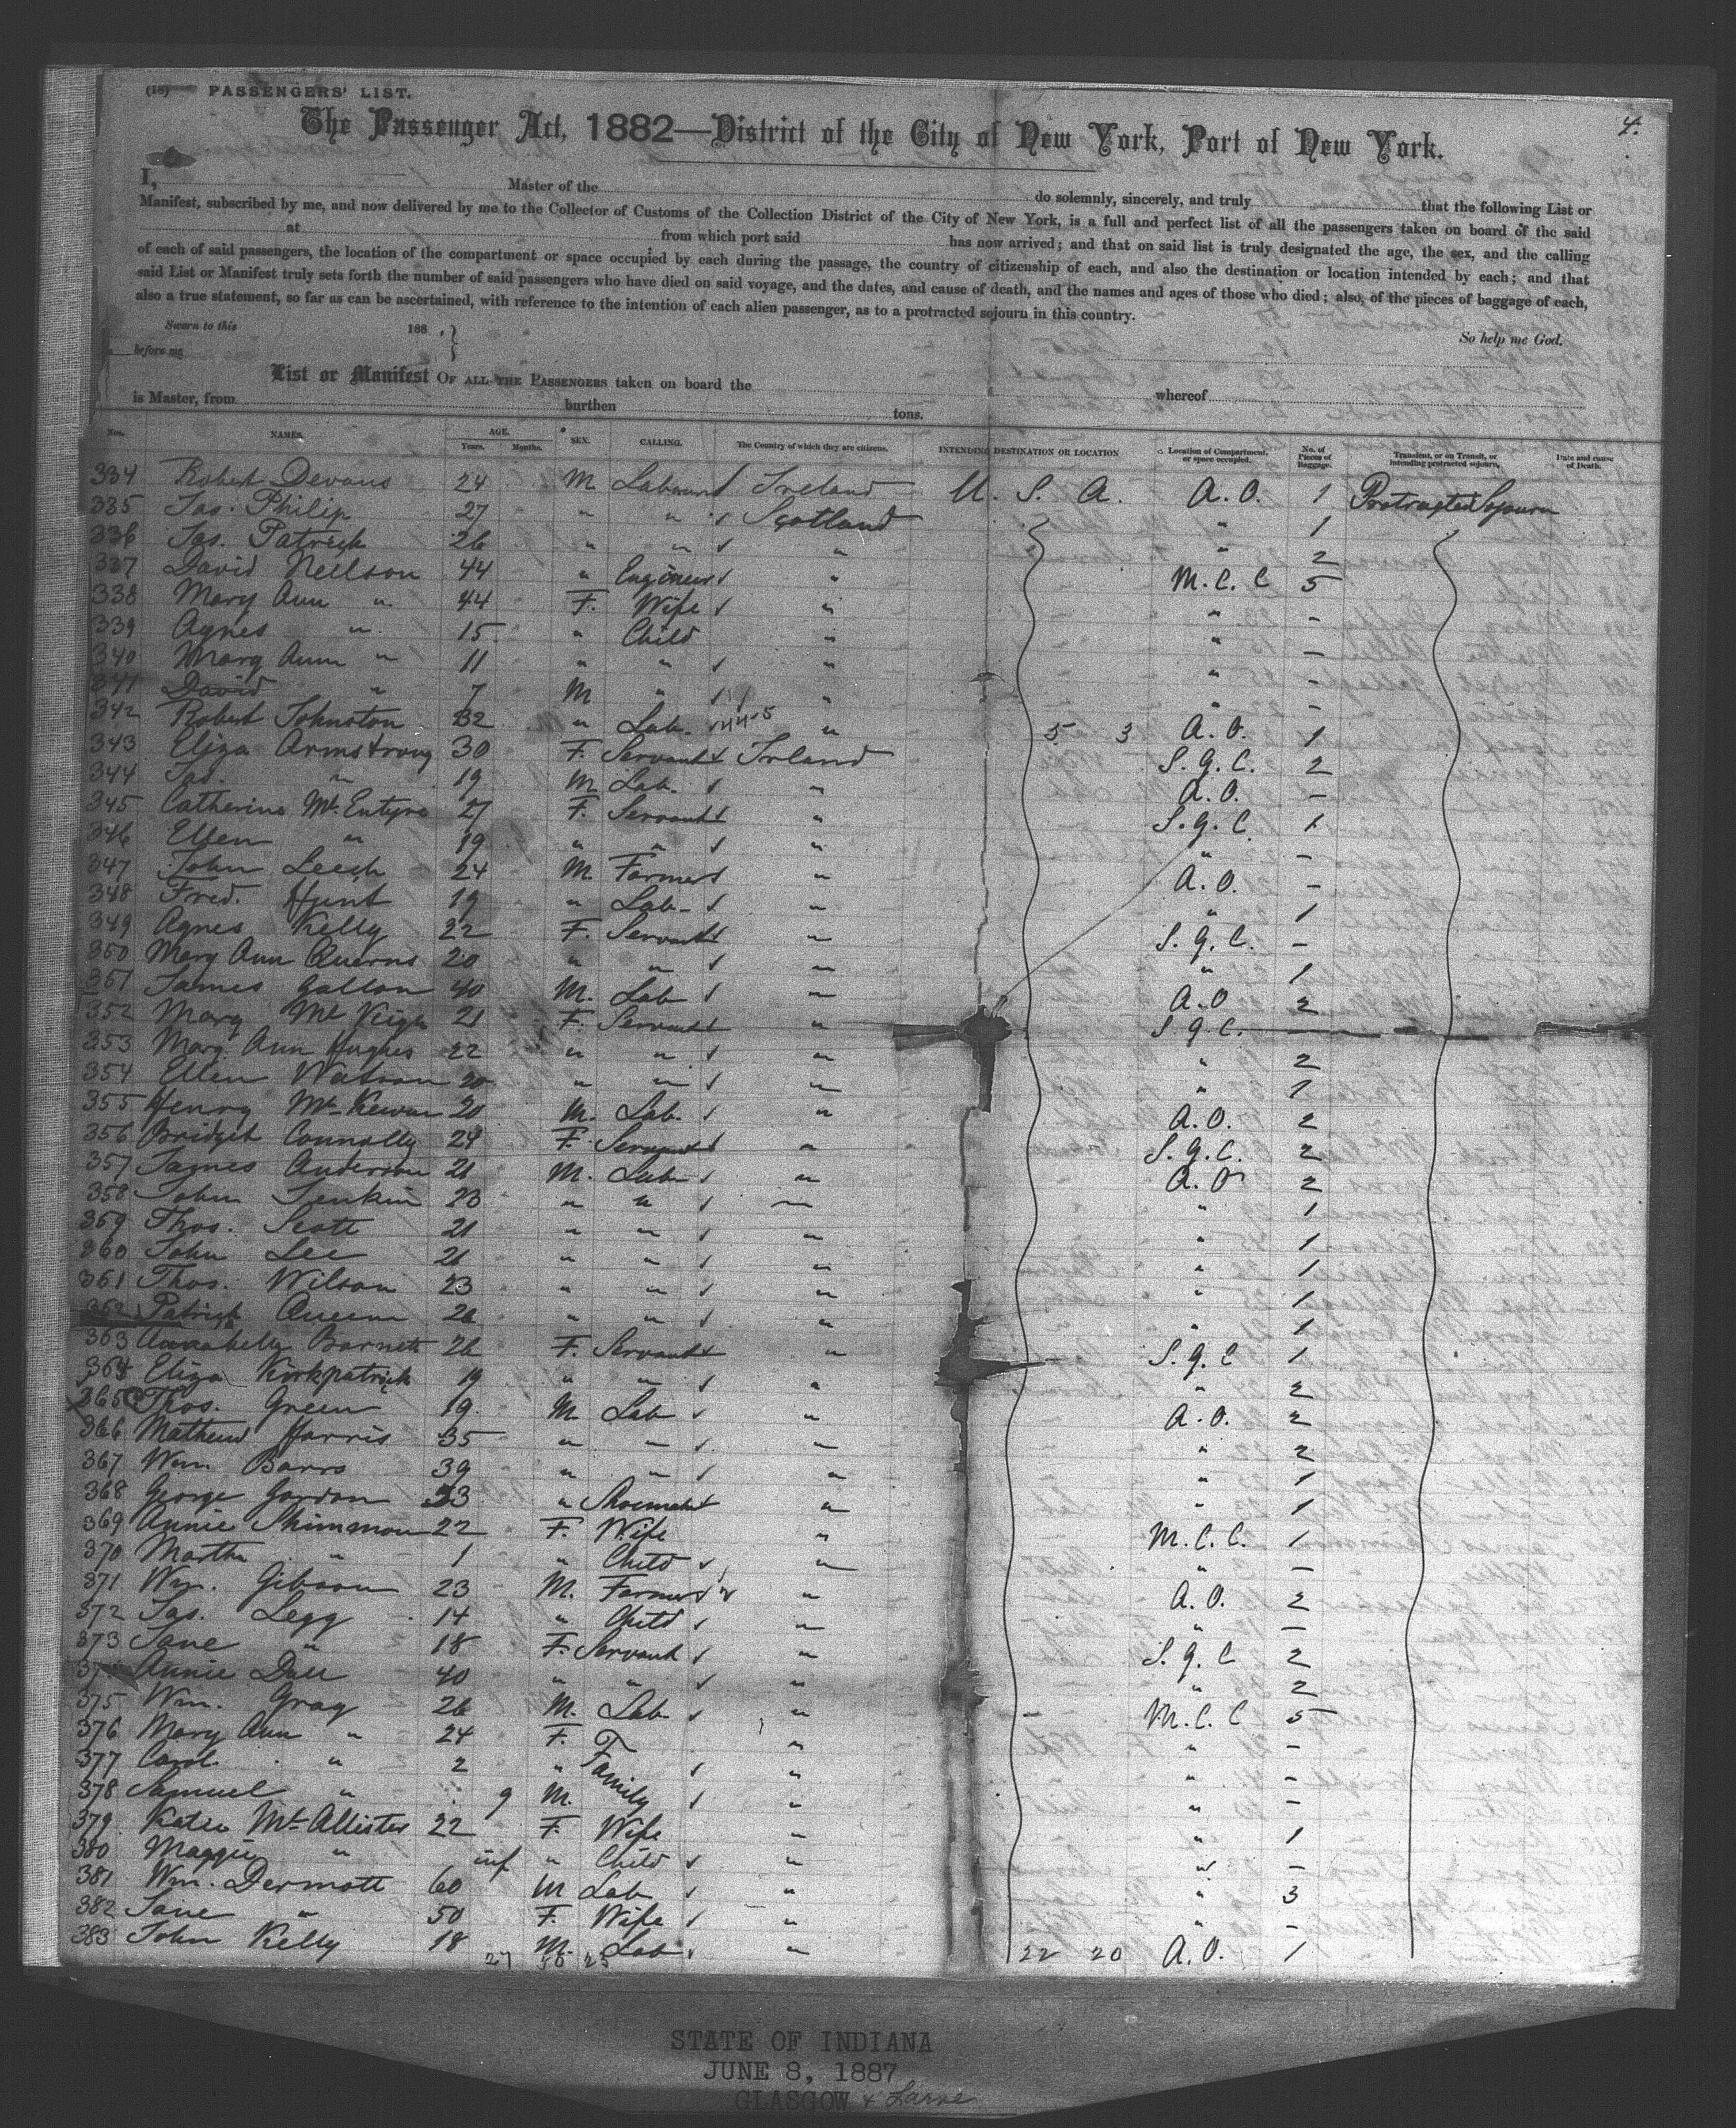 (18) PASSENGERS' LIST.
4.
The Passenger Act, 1882—District of the City of New York, Port of New York.
I, Master of the do solemnly, sincerely, and truly that the following List or
Manifest, subscribed by me, and now delivered by me to the Collector of Customs of the Collection District of the City of New York, is a full and perfect list of all the passengers taken on board of the said
at from which port said has now arrived; and that on said list is truly designated the age, the sex, and the calling
of each of said passengers, the location of the compartment or space occupied by each during the passage, the country of citizenship of each, and also the destination or location intended by each; and that
said List or Manifest truly sets forth the number of said passengers who have died on said voyage, and the dates, and cause of death, and the names and ages of those who died; also, of the pieces of baggage of each,
also a true statement, so far as can be ascertained, with reference to the intention of each alien passenger, as to a protracted sojourn in this country.
Sworn to this 188 . } So help me God.
before me
List or Manifest OF ALL THE PASSENGERS taken on board the whereof
is Master, from burthen tons.
Nos. NAMES. AGE. Years. Months. SEX. CALLING. The Country of which they are citizens. INTENDING DESTINATION OR LOCATION Location of Compartment, or space occupied. No. of Pieces of Baggage. Transient, or on Transit, or intending protracted sojourn. Date and cause of Death.
334 Robert Devans 24 M Labourer Ireland U. S. A. A. O. 1 Protracted Sojourn
335 Jas. Philip 27 " " Scotland " 1
336 Jas. Patrick 26 " " " " 2
337 David Neilson 44 " Engineer " M. C. C 5
338 Mary Ann " 44 F. Wife " " -
339 Agnes " 15 " Child " " -
340 Mary Ann " 11 " " " " -
341 David " 7 M " " " -
342 Robert Johnston 32 " Lab. " 5 3 A. O. 1
343 Eliza Armstrong 30 F. Servant Irland S. G. C. 2
344 Jas. " 19 M. Lab. " A. O. -
345 Catherine McEntyre 27 F. Servant " S. G. C. 1
346 Ellen " 19 " " " " -
347 John Leech 24 M Farmer " A. O. -
348 Fred. Hunt 19 " Lab. " " 1
349 Agnes Kelly 22 F. Servant " S. G. C. -
350 Mary Ann Querns 20 " " " " 1
351 James Gallon 40 M. Lab " A. O 2
352 Mary 21 F. Servant " S. G. C. -
353 Mary Ann Hughes 22 " " " " 2
354 Ellen Watson 20 " " " " 1
355 Henry McKewan 20 M. Lab. " A. O. 2
356 Bridget Connolly 24 F. Servant " S. G. C. 2
357 James Anderson 21 M. Lab " A. O 2
358 John Jenkin 23 " " " " 1
359 Thos. Scott 21 " " " " 1
360 John Lee 21 " " " " 1
361 Thos. Wilson 23 " " " " 1
362 Patrick Queen 26 " " " " 1
363 Barnett 26 F. Servant " S. G. C 1
364 Eliza Kirkpatrick 19 " " " " 2
365 Thos. Green 19 M Lab " A. O. 2
366 Mathew Harris 35 " " " " 2
367 Wm. Barrs 39 " " " " 1
368 George Gordon 33 " Shoemaker " " 1
369 Annie Shimmon 22 F. Wife " M. C. C. 1
370 Martha " 1 " Child " " -
371 Wm. Gibson 23 M. Farmer " A. O. 2
372 Jas. Legg 14 " Child " " -
373 Jane " 18 F. Servant " S. G. C 2
37 Annie 40 " " " " 2
375 Wm. Gray 26 M. Lab. " M. C. C 5
376 Mary Ann " 24 F. Family " " -
377 Carol. " 2 " " " -
378 Samuel " 9 M. " " -
379 Katie McAllister 22 F. Wife " " 1
380 Maggie " inf " Child " " -
381 Wm. Dermott 60 M Lab " " 3
382 Jane " 50 F. Wife " " -
383 John Kelly 18 M. Lab. " A. O. 1
27 50 25 22 20
STATE OF INDIANA
JUNE 8, 1887
GLASGOW & Larne